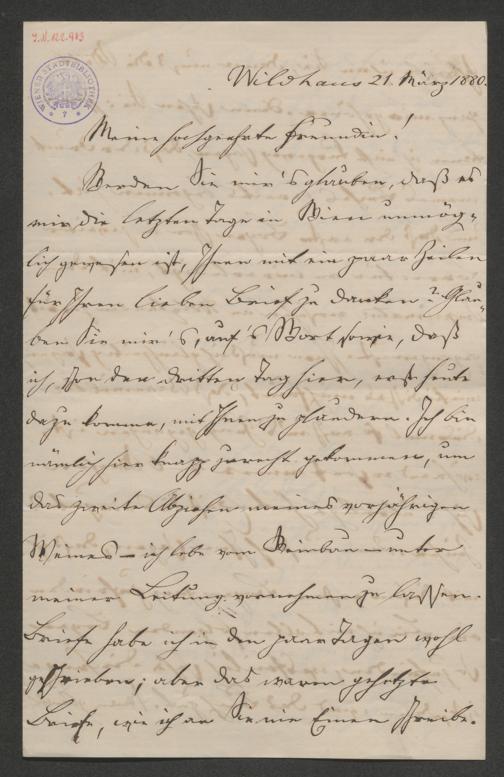 I.N. 122.973
WIENER STADTBIBLIOTHEK
7
Wildhaus 21. März 1880.
Meine hochgeehrte Freundin!
Werden Sie mir's glauben, daß es
mir die letzten Tage in Wien unmög-
lich gewesen ist, Ihnen mit ein paar Zeilen
für Ihren lieben Brief zu danken? Glau-
ben Sie mir's, auf's Wort sowie, daß
ich, schon den dritten Tag hier, erst heute
dazu komme, mit Ihnen zu plaudern. Ich bin
nämlich hier knapp zurecht gekommen, um
das zweite Abziehen meines vorjährigen
Weines – ich lebe vom Weinbau – unter
meiner Leitung vornehmen zu lassen.
Briefe habe ich in den paar Tagen wohl
geschrieben; aber das waren gehetzte
Briefe, wie ich an Sie nie Einen schreibe.